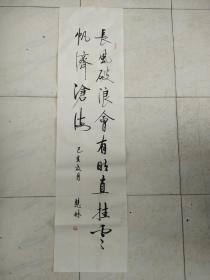 長風破浪會有時直挂雲
帆濟滄海
己亥